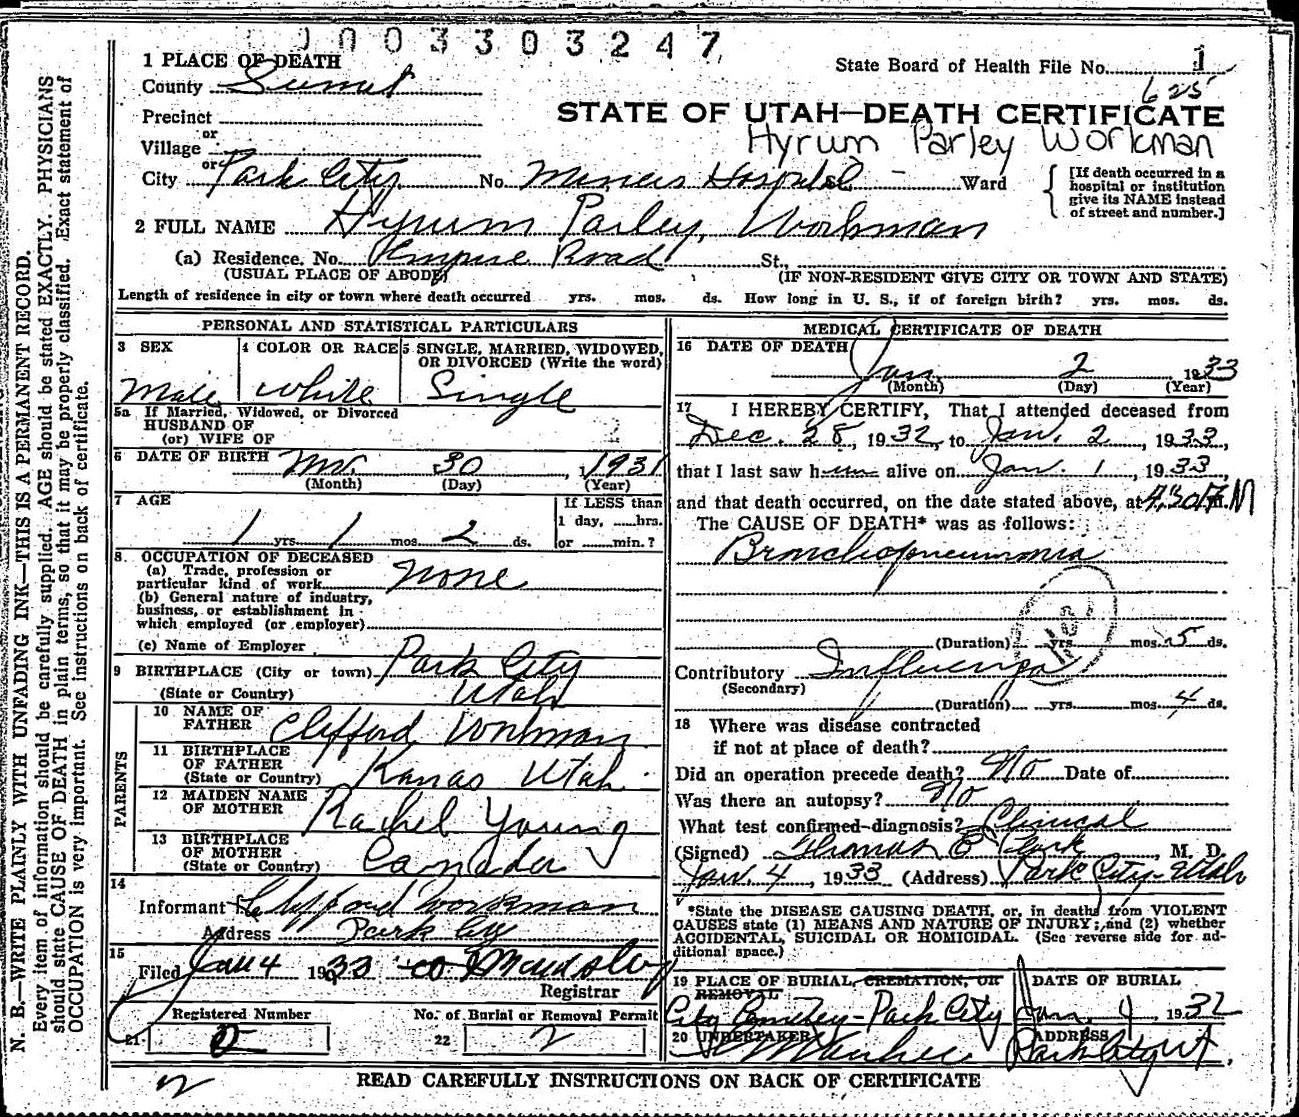 0003303247
1 PLACE OF DEATH
County Summit
Precinct
or
Village
or
City Park City No. Miners Hospital - Ward
State Board of Health File No. 1
625
STATE OF UTAH—DEATH CERTIFICATE
Hyrum Parley Workman
[If death occurred in a hospital or institution give its NAME instead of street and number.]
2 FULL NAME Hyrum Parley Workman
(a) Residence. No. Empire Road St.,
(USUAL PLACE OF ABODE) (IF NON-RESIDENT GIVE CITY OR TOWN AND STATE)
Length of residence in city or town where death occurred yrs. mos. ds. How long in U. S., if of foreign birth? yrs. mos. ds.
PERSONAL AND STATISTICAL PARTICULARS
3 SEX Male
4 COLOR OR RACE White
5 SINGLE, MARRIED, WIDOWED, OR DIVORCED (Write the word) Single
5a If Married, Widowed, or Divorced
HUSBAND OF
(or) WIFE OF
6 DATE OF BIRTH Nov. 30, 1931
(Month) (Day) (Year)
7 AGE
1 yrs. 1 mos. 2 ds.
If LESS than
1 day, ......hrs.
or ......min.?
8. OCCUPATION OF DECEASED
(a) Trade, profession or
particular kind of work None
(b) General nature of industry,
business, or establishment in
which employed (or employer)
(c) Name of Employer
9 BIRTHPLACE (City or town) Park City
(State or Country) Utah
PARENTS
10 NAME OF FATHER Clifford Workman
11 BIRTHPLACE OF FATHER (State or Country) Kamas Utah
12 MAIDEN NAME OF MOTHER Rachel Young
13 BIRTHPLACE OF MOTHER (State or Country) Canada
14
Informant Clifford Workman
Address Park City
15
Filed Jan 4 1933
Registrar
Registered Number
21
No. of Burial or Removal Permit
22 2
MEDICAL CERTIFICATE OF DEATH
16 DATE OF DEATH
Jan 2 1933
(Month) (Day) (Year)
17 I HEREBY CERTIFY, That I attended deceased from
Dec. 28, 1932, to Jan. 2, 1933,
that I last saw him alive on Jan. 1, 1933
and that death occurred, on the date stated above, at 4:30 P.M
The CAUSE OF DEATH* was as follows:
Bronchopneumonia
(Duration) yrs. mos. 5 ds.
Contributory Influenza
(Secondary)
(Duration) yrs. mos. 4 ds.
18 Where was disease contracted
if not at place of death?
Did an operation precede death? No Date of
Was there an autopsy? No
What test confirmed diagnosis? Clinical
(Signed) Thomas , M. D.
Jan. 4, 1933 (Address) Park City-Utah
*State the DISEASE CAUSING DEATH, or, in deaths from VIOLENT
CAUSES state (1) MEANS AND NATURE OF INJURY; and (2) whether
ACCIDENTAL, SUICIDAL OR HOMICIDAL. (See reverse side for ad-
ditional space.)
19 PLACE OF BURIAL, CREMATION, OR REMOVAL
City Cemetery-Park City
DATE OF BURIAL
Jan. 4, 1932
20 UNDERTAKER
ADDRESS
Park City Ut.
2
READ CAREFULLY INSTRUCTIONS ON BACK OF CERTIFICATE
N. B.—WRITE PLAINLY WITH UNFADING INK—THIS IS A PERMANENT RECORD.
Every item of information should be carefully supplied. AGE should be stated EXACTLY. PHYSICIANS
should state CAUSE OF DEATH in plain terms, so that it may be properly classified. Exact statement of
OCCUPATION is very important. See instructions on back of certificate.